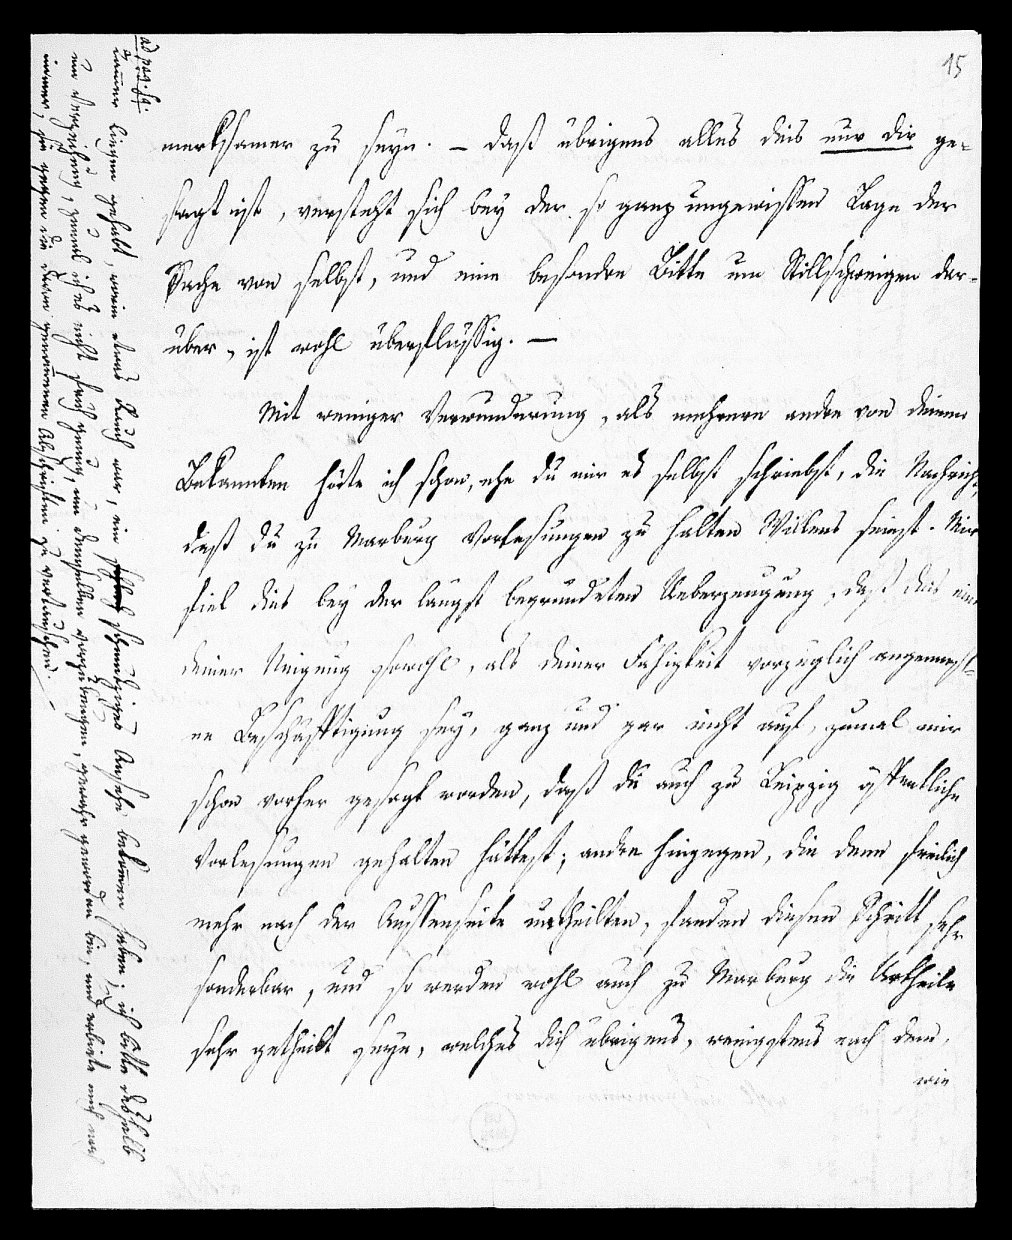 15
merksamer zu seyn. – Daß übrigens alles dies nur dir ge-
sagt ist, versteht sich bey der so ganz ungewissen Lage der
Sache von selbst, und eine besondre Bitte um Stillschweigen dar-
über, ist wohl überflüssig. –
Mit weniger Verwunderung, als mehrere andre von deinen
Bekannten hörte ich schon, ehe du mir es selbst schriebst, die Nachricht,
daß du zu Marburg Vorlesungen zu halten Willens seiest. Mir
fiel dies bey der längst begründeten Ueberzeugung, daß dies eine
deiner Neigung sowohl, als deiner Fähigkeit vorzüglich angemeß-
ne Beschäfftigung sey, ganz und gar nicht auf, zumal mir
schon vorher gesagt worden, daß du auch zu Leipzig öffentliche
Vorlesungen gehalten hättest; andre hingegen, die denn freilich
mehr nach der Aussenseite urtheilten, fanden diesen Schritt sehr
sonderbar, und so werden wohl auch zu Marburg die Urtheile
sehr getheilt seyn, welches dich übrigens, wenigstens nach dem,
wie
ad pag.
liegen gehabt, worin etwas Rauch war, ein schmutziges Ansehn bekommen haben; ich bitte deshalb
um Verzeihung, zumal ich es nicht früh genug, um demselben vorzubeugen, gewahr geworden bin, und erbiete mich noch
immer, sie gegen die davon genommenen Abschriften zu vertauschen.